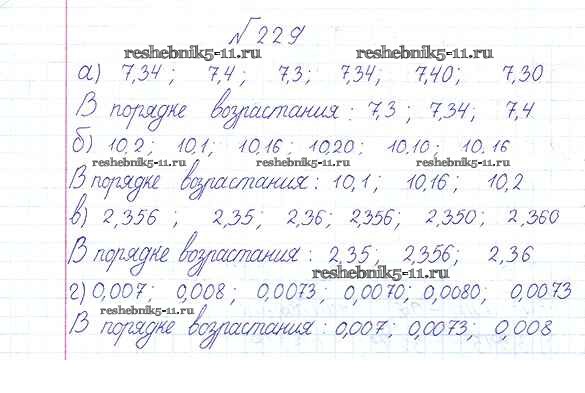 №229
reshebnik5-11.ru reshebnik5-11.ru
а) 7,34; 7,4; 7,3; 7,34; 7,40; 7,30
В порядке возрастания: 7,3; 7,34; 7,4
б) 10,2; 10,1; 10,16; 10,20; 10,10; 10.16
reshebnik5-11.ru reshebnik5-11.ru reshebnik5-11.ru
В порядке возрастания: 10,1; 10,16; 10,2
в) 2,356; 2,35; 2,36; 2,356; 2,350; 2,360
В порядке возрастания: 2,35; 2,356; 2,36
reshebnik5-11.ru
г) 0,007; 0,008; 0,0073; 0,0070; 0,0080; 0,0073
reshebnik5-11.ru
В порядке возрастания: 0,007; 0,0073; 0,008